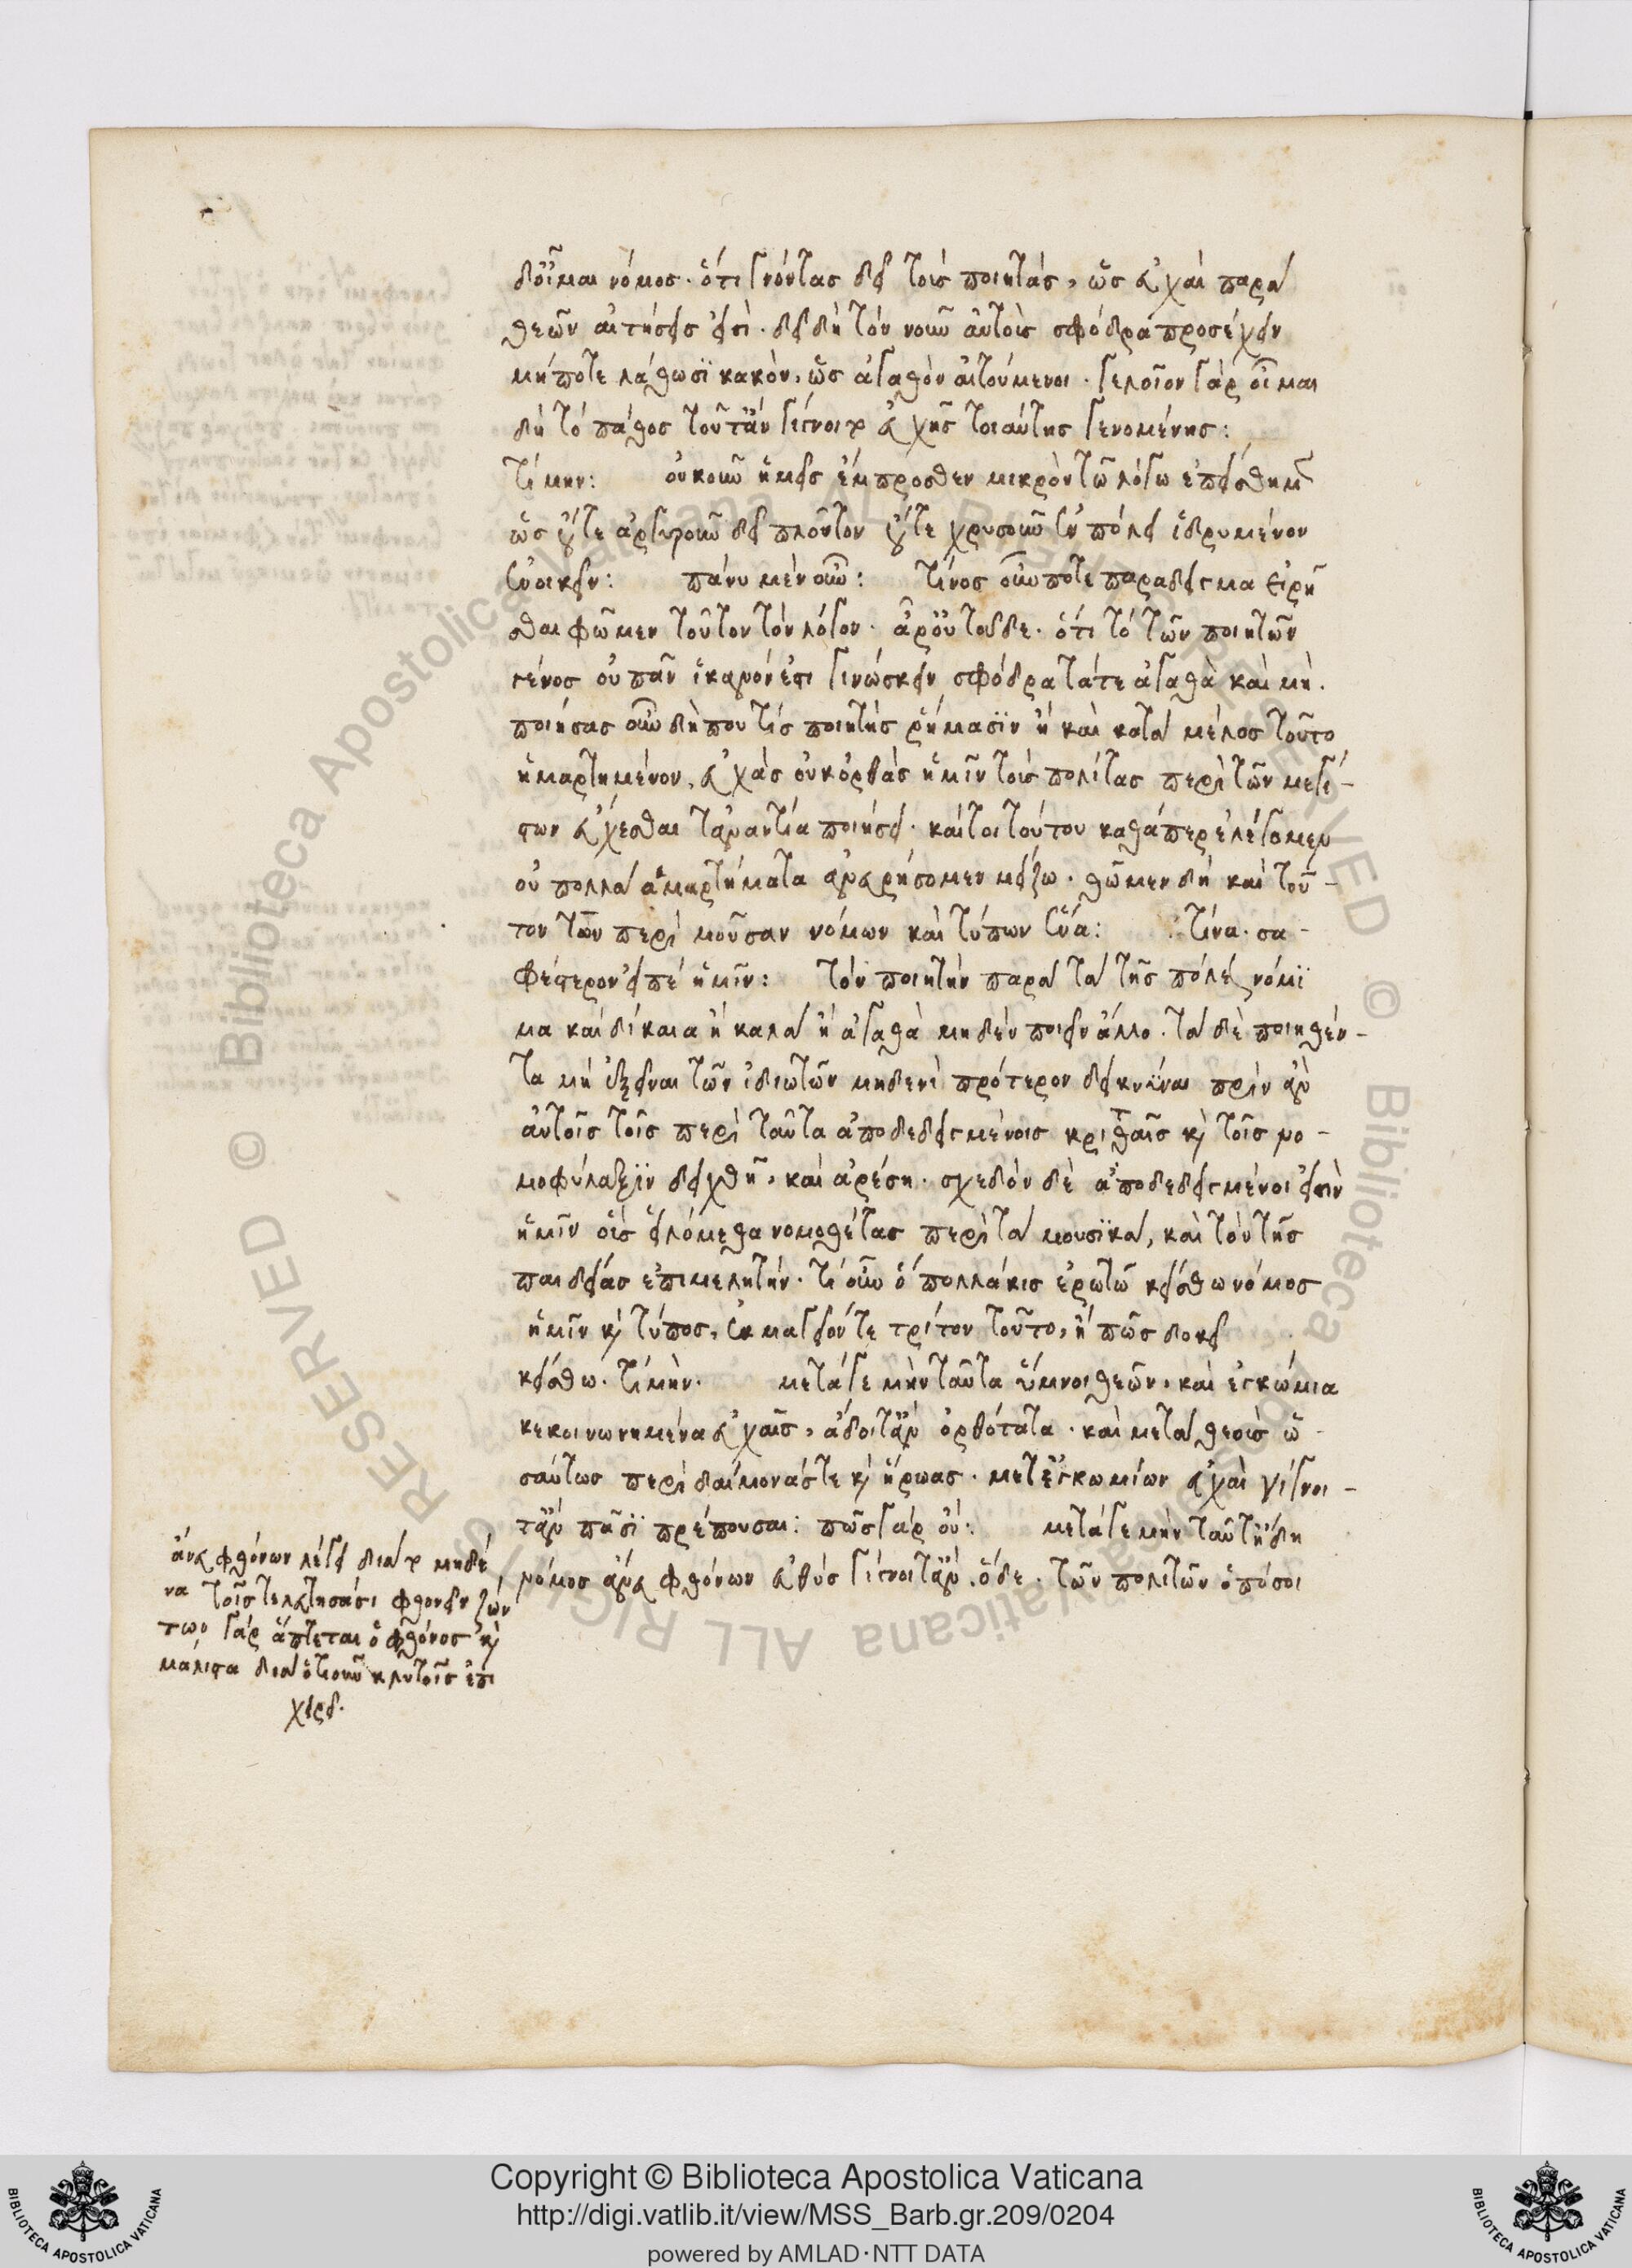 δ' οἶμαι νόμος· ὅτι γνόντας δεῖ τοὺς ποιητὰς, ὡς εὐχαὶ παρὰ
θεῶν αἰτήσεις εἰσὶ· δεῖ δὴ τὸν νοῦν αὐτοὺς σφόδρα προσέχειν
μήποτε λάθωσι κακὸν, ὡς ἀγαθὸν αἰτούμενοι· γελοῖον γὰρ οἶμαι
δὴ τὸ πάθος τοῦτ' ἂν γίγνοιτο εὐχῆς τοιαύτης γενομένης:
τί μήν: οὐκοῦν ἡμεῖς ἔμπροσθεν μικρὸν τῶ λόγω ἐπείσθημεν
ὡς οὔτε ἀργυροῦν δεῖ πλοῦτον οὔτε χρυσοῦν ἐν πόλει ἱδρυμένον
ἐνοικεῖν: πάνυ μὲν οὖν: τίνος οὖν ποτε παράδειγμα εἰρῆ
σθαι φῶμεν τοῦτον τὸν λόγον· ἆρ' οὐ τοῦδε· ὅτι τὸ τῶν ποιητῶν
γένος οὐ πᾶν ἱκανόν ἐστι γινώσκειν σφόδρα τά τε ἀγαθὰ καὶ μὴ.
ποιήσας οὖν δήπου τὶς ποιητὴς ῥήμασιν ἢ καὶ κατὰ μέλος τοῦτο
ἡμαρτημένον, εὐχὰς οὐκ ὀρθὰς ἡμῖν τοὺς πολίτας περὶ τῶν μεγί-
στων εὔχεσθαι τἀναντία ποιήσει· καίτοι τούτου καθάπερ ἐλέγομεν
οὐ πολλὰ ἁμαρτήματα ἀνευρήσομεν μείζω· θῶμεν δὴ καὶ τοῦ-
τον τῶν περὶ μοῦσαν νόμων καὶ τύπων ἕνα: τίνα· σα-
φέστερον εἰπὲ ἡμῖν: τὸν ποιητὴν παρὰ τὰ τῆς πόλεως νόμι
μα καὶ δίκαια ἢ καλὰ ἢ ἀγαθὰ μηδὲν ποιεῖν ἄλλο. τὰ δὲ ποιηθέν-
τα μὴ ἐξεῖναι τῶν ἰδιωτῶν μηδενὶ πρότερον δεικνύναι πρὶν ἂν
αὐτοῖς τοῖς περὶ ταῦτα ἀποδεδειγμένοις κριταῖς καὶ τοῖς νο-
μοφύλαξιν δειχθῆ, καὶ ἀρέση· σχεδὸν δὲ ἀποδεδειγμένοι εἰσὶν
ἡμῖν οὓς εἱλόμεθα νομοθέτας περὶ τὰ μουσικὰ, καὶ τὸν τῆς
παιδείας ἐπιμελητήν· τί οὖν ὃ πολλάκις ἐρωτῶ κείσθω νόμος
ἡμῖν καὶ τύπος, ἐκμαγεῖόν τε τρίτον τοῦτο, ἢ πῶς δοκεῖ
κείσθω· τί μήν. μετά γε μὴν ταῦτα ὕμνοι θεῶν, καὶ ἐγκώμια
κεκοινωνημένα εὐχαῖς, ἄδοιτ' ἂν ὀρθότατα· καὶ μετὰ θεοὺς ὡ-
σαύτως περὶ δαίμονάς τε καὶ ἥρωας· μετ' ἐγκωμίων εὐχαὶ γίγνοι-
τ' ἂν πᾶσι πρέπουσαι: πῶς γὰρ οὔ: μετά γε μὴν ταῦτ' ἤδη
νόμος ἄνευ φθόνων εὐθὺς γίγνοιτ' ἂν, ὅδε· τῶν πολιτῶν ὁπόσοι
ἄνευ φθόνων λέγει διὰ τὸ μηδέ
να τοῖς τελευτήσασι φθονεῖν ζών
των γὰρ ἅπτεται ὁ φθόνος καὶ
μάλιστα
Copyright © Biblioteca Apostolica Vaticana
http://digi.vatlib.it/view/MSS_Barb.gr.209/0204
powered by AMLAD·NTT DATA